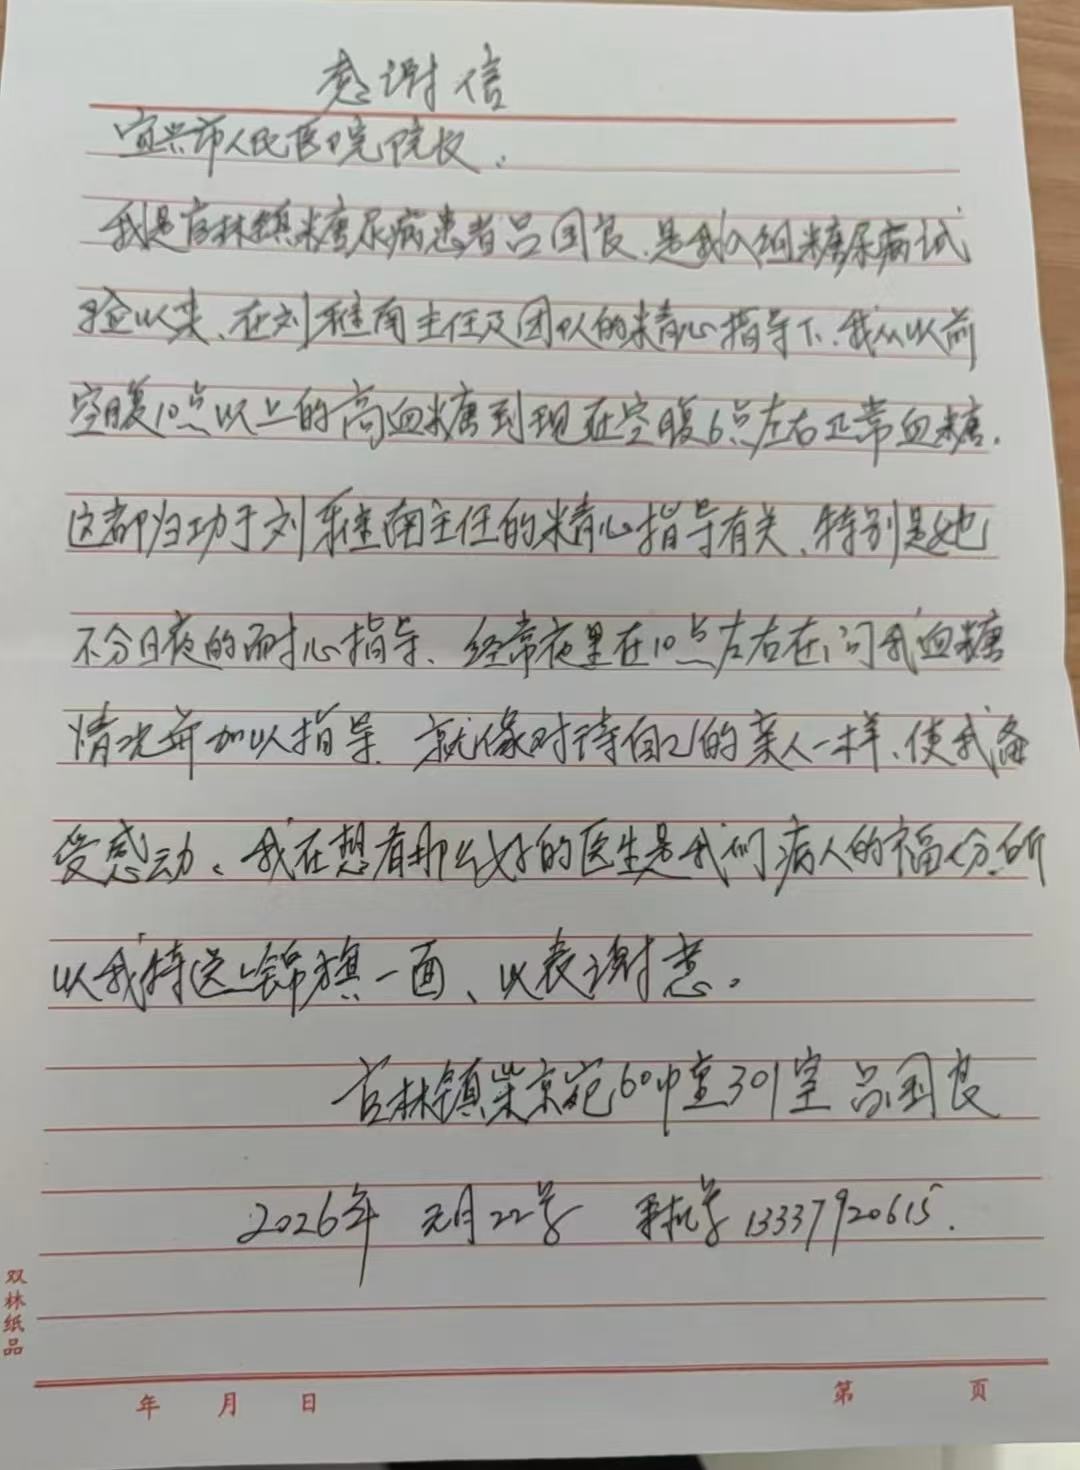 感谢信
宜兴市人民医院院长：
我是官林镇糖尿病患者吕国良，是我入组糖尿病试
验以来、在刘雅南主任及团队的精心指导下、我从以前
空腹10点以上的高血糖到现在空腹6点左右正常血糖.
这都归功于刘雅南主任的精心指导有关、特别是她
不分日夜的耐心指导、经常夜里在10点左右在问我血糖
情况并加以指导、就像对待自己的亲人一样、使我备
受感动。我在想有那么好的医生是我们病人的福分.所
以我特送上锦旗一面、以表谢意。
官林镇紫京苑60幢301室 吕国良
2026年 元月22号 手机号 13337920615.
双林纸品
年 月 日 第 页